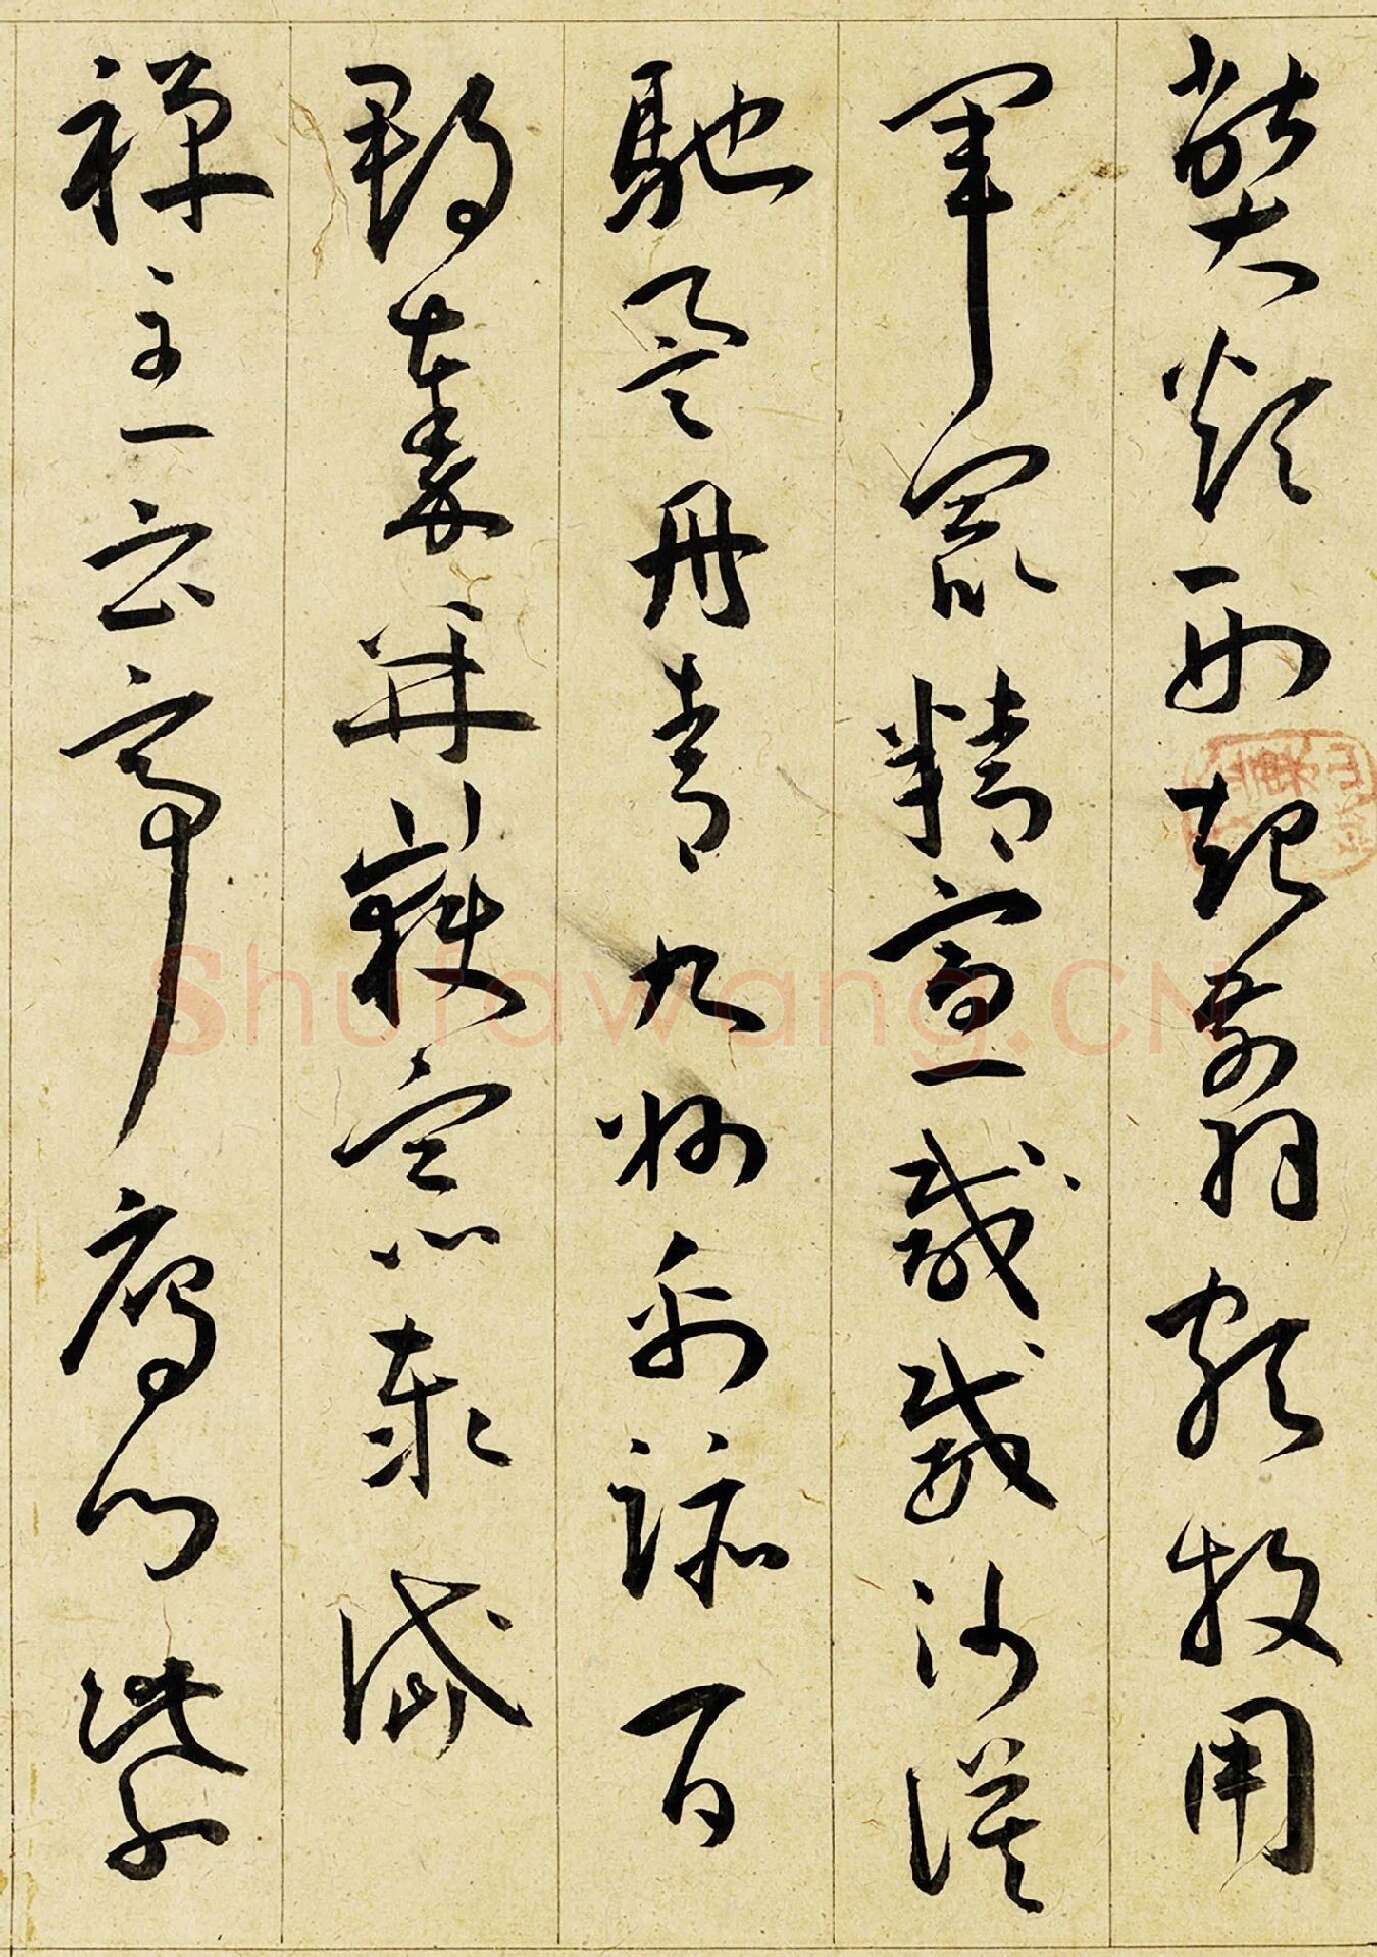 獘煩刑起翦頗牧用
軍最精宣威威沙漠
馳譽丹青九州禹跡百
郡秦并嶽宗泰岱
禪主云亭雁門紫
Shufawang.CN